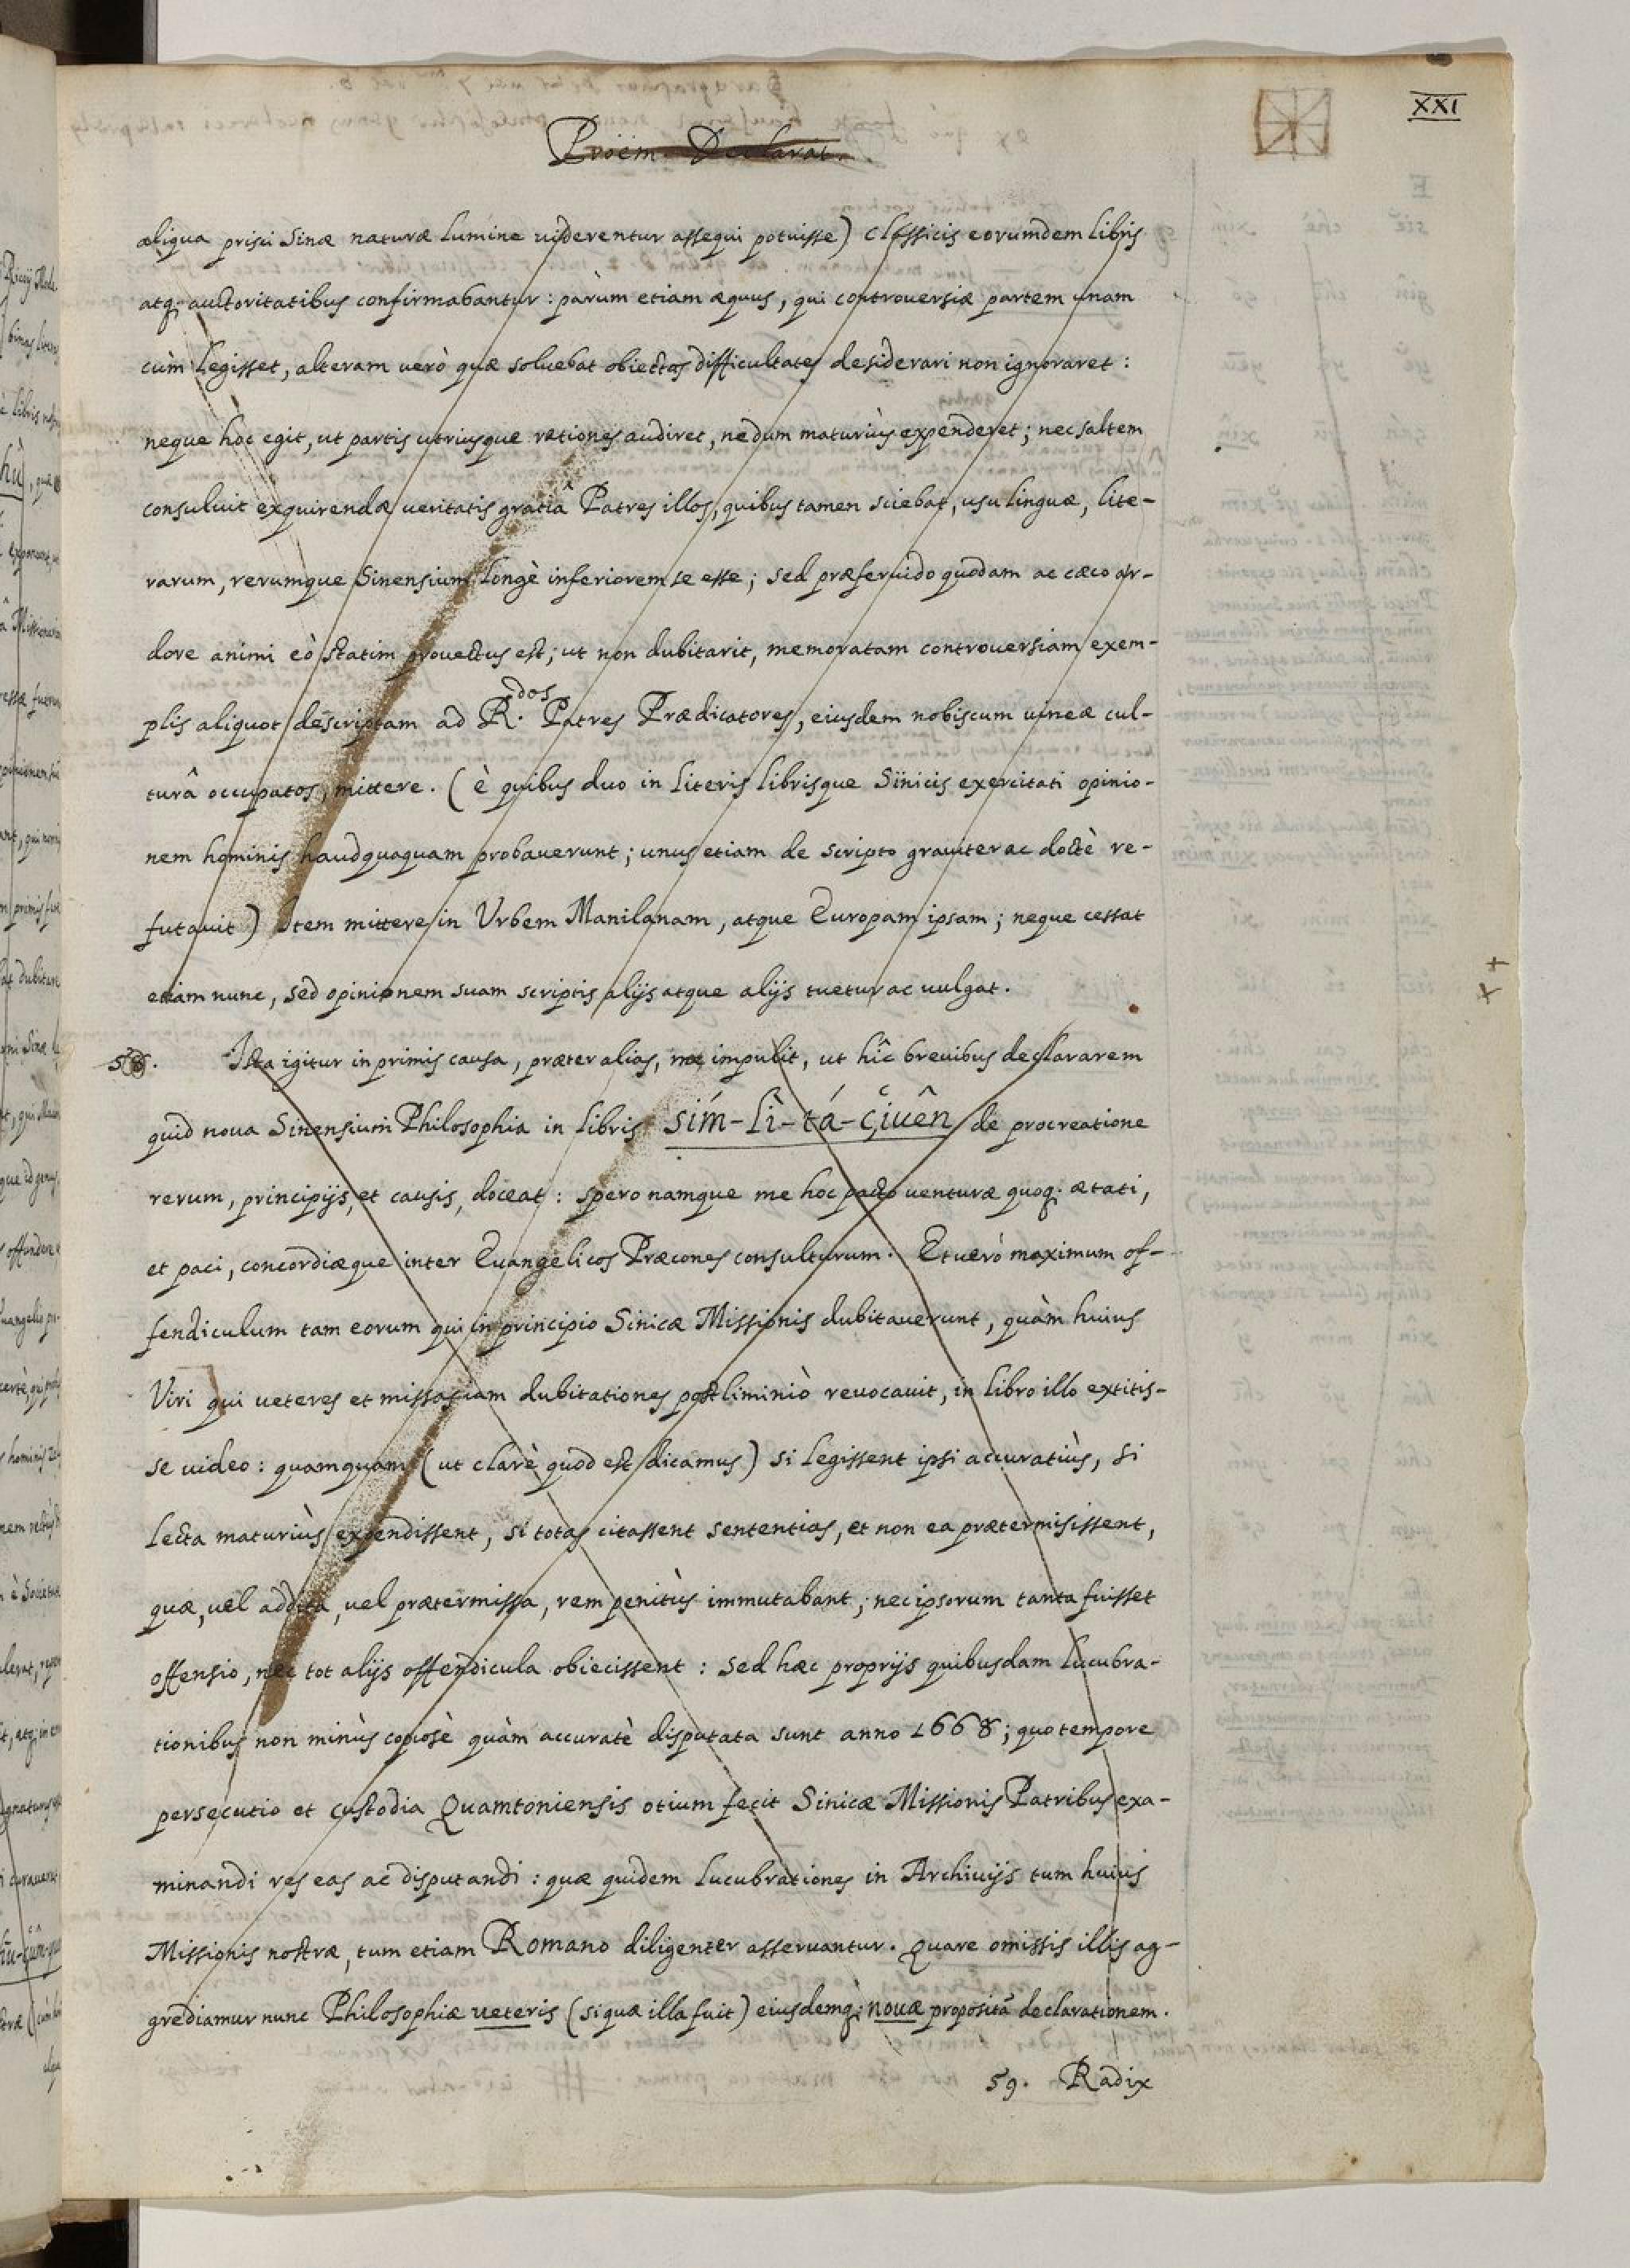 XXI
Proëm. Declarat.
aliqua prisci Sinæ naturæ lumine uiderentur assequi potuisse) classicis eorumdem libris
atq; auctoritatibus confirmabantur: parùm etiam æquus, qui controuersiæ partem unam
cùm legisset, alteram uerò quæ soluebat obiectas difficultates desiderari non ignoraret:
neque hoc egit, ut partis utriusque rationes audiret, nedum maturiùs expenderet; nec saltem
consuluit exquirendæ ueritatis gratiâ Patres illos, quibus tamen sciebat, usu linguæ, lite-
rarum, rerumque Sinensium longè inferiorem se esse; sed præferuido quodam ac cæco ar-
dore animi eò statim prouectus est; ut non dubitarit, memoratam controuersiam exem-
plis aliquot descriptam ad R.dos Patres Prædicatores, eiusdem nobiscum uineæ cul-
turâ occupatos, mittere. (è quibus duo in literis librisque Sinicis exercitati opinio-
nem hominis haudquaquam probauerunt; unus etiam de scripto grauiter ac doctè re-
futauit) Item mittere in Vrbem Manilanam, atque Europam ipsam; neque cessat
etiam nunc, sed opinionem suam scriptis alijs atque alijs tuetur ac uulgat.
58. Ista igitur in primis causa, præter alias, me impulit, ut hîc breuibus declararem
quid noua Sinensium Philosophia in libris sím-lì-tá-çiuên de procreatione
rerum, principijs, et causis, doceat: spero namque me hoc pacto uenturæ quoq. ætati,
et paci, concordiæque inter Euangelicos Præcones consulturum. Et uerò maximum of-
fendiculum tam eorum qui in principio Sinicæ Missionis dubitauerunt, quàm huius
Viri qui ueteres et missas iam dubitationes postliminiò reuocauit, in libro illo extitis-
se uideo: quamquam (ut clarè quod est dicamus) si legissent ipsi accuratiùs, si
lecta maturiùs expendissent, si totas citassent sententias, et non ea prætermisissent,
quæ, uel addita, uel prætermissa, rem penitùs immutabant; nec ipsorum tanta fuisset
offensio, nec tot alijs offendicula obiecissent: sed hæc proprijs quibusdam lucubra-
tionibus non minùs copiosè quàm accuratè disputata sunt anno 1668; quo tempore
persecutio et custodia Quamtoniensis otium fecit Sinicæ Missionis Patribus exa-
minandi res eas ac disputandi: quæ quidem lucubrationes in Archiuijs tum huius
Missionis nostræ, tum etiam Romano diligenter asseruantur. Quare omissis illis ag-
grediamur nunc Philosophiæ ueteris (si quæ illa fuit) eiusdemq; nouæ propositã declarationem.
59. Radix